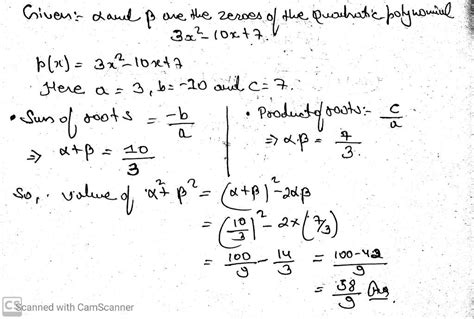 Given:- α and β are the zeroes of the Quadratic polynomial
3x²-10x+7.
p(x) = 3x²-10x+7
Here a = 3, b = -10 and c = 7.
• Sum of roots = -b/a
⇒ α+β = 10/3
• Product of roots:- c/a
⇒ α.β = 7/3.
So, value of α²+β² = (α+β)²-2αβ
= (10/3)² - 2×(7/3)
= 100/9 - 14/3 = 100-42/9
= 58/9 Ans
CS Scanned with CamScanner